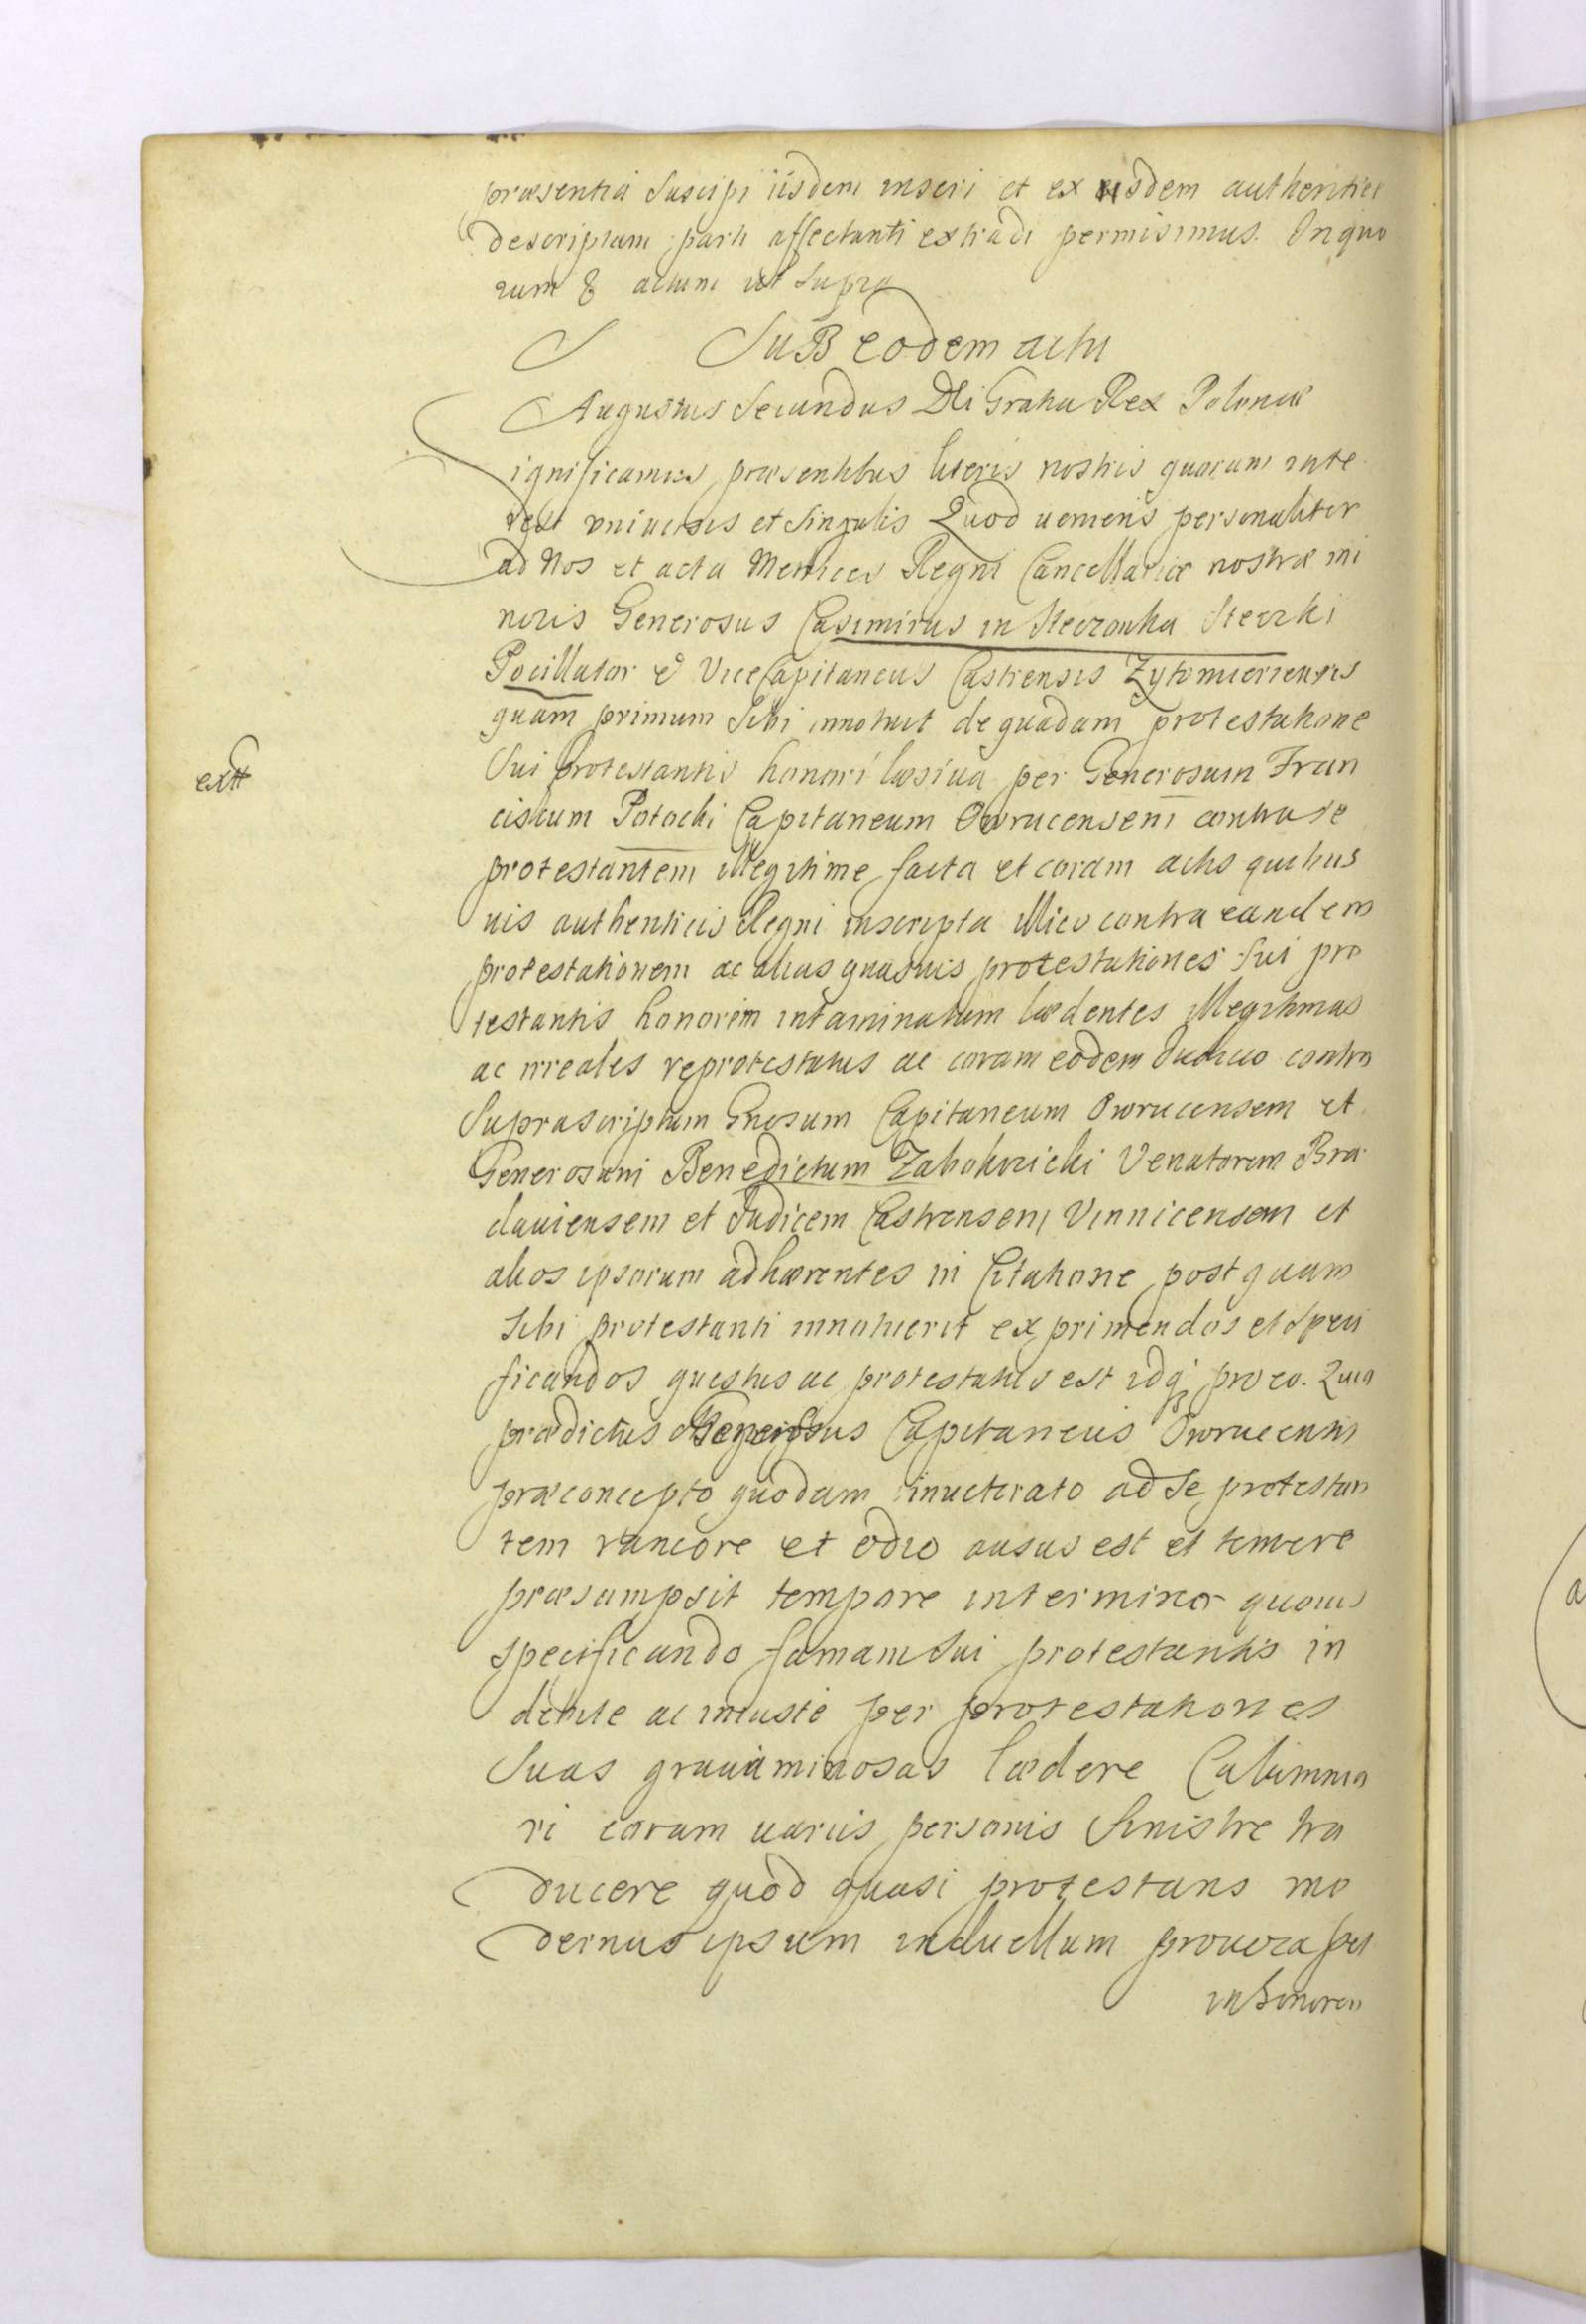 præsentia suscipi iisdem inseri et ex iisdem authentice
descriptam parti affectanti extradi permisimus. In quo
rum & actum ut supra
SuB eodem actu
Augustus Secundus DEi Gratia Rex Poloniæ
Significamus præsentibus literis nostris quorum inte
rest vniuersis et singulis Quod ueniens personaliter
ad Nos et acta Metrices Regni Cancellariæ nostræ mi
noris Generosus Casimirus in Steczanka Steczki
Pocillator & ViceCapitaneus Castrensis Zytomieriensis
quam primum sibi innotuit de quadam protestatione
extt
sui protestantis honori læsiua per Generosum Fran
ciscum Potocki Capitaneum Owrucensem contra se
protestantem illegitime facta et coram actis quibus
uis authenticis Regni inscripta illico contra eandem
protestationem ac alias quasuis protestationes sui pro
testantis honorem intaminatum lædentes illegitimas
ac irreales reprotestatus ac coram eodem Iudicio contra
suprascriptum Gnosum Capitaneum Owrucensem et
Generosum Benedictum Zabokrzicki Venatorem Bra
clauiensem et Iudicem Castrensem Vinnicensem et
alios ipsorum adhærentes in Citatione postquam
sibi protestanti innotuerit exprimendos et speci
ficandos questus ac protestatus est idq pro eo. Quia
prædictus Generosus Capitaneus Owrucensis
præconcepto quodam inueterato ad se protestan
tem rancore et odio ausus est et temere
præsumpsit tempore intermino quouis
specificando famam sui protestantis in
debite ac iniuste per protestationes
suas grauaminosas lædere Calumnia
ri coram uariis personis sinistre tra
ducere quod quasi protestans mo
dernus ipsum in duellum prouoca
in honorem